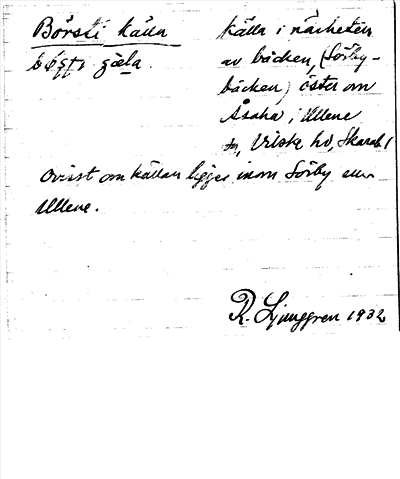 Börsti källa
källa i närheten
av bäcken, (Sörby-
bäcken) öster om
Åsaka, i Ullene
sn, Vilske hd, Skarab. l
Ovisst om källan ligger inom Sörby eller
Ullene.
R. Ljunggren 1932